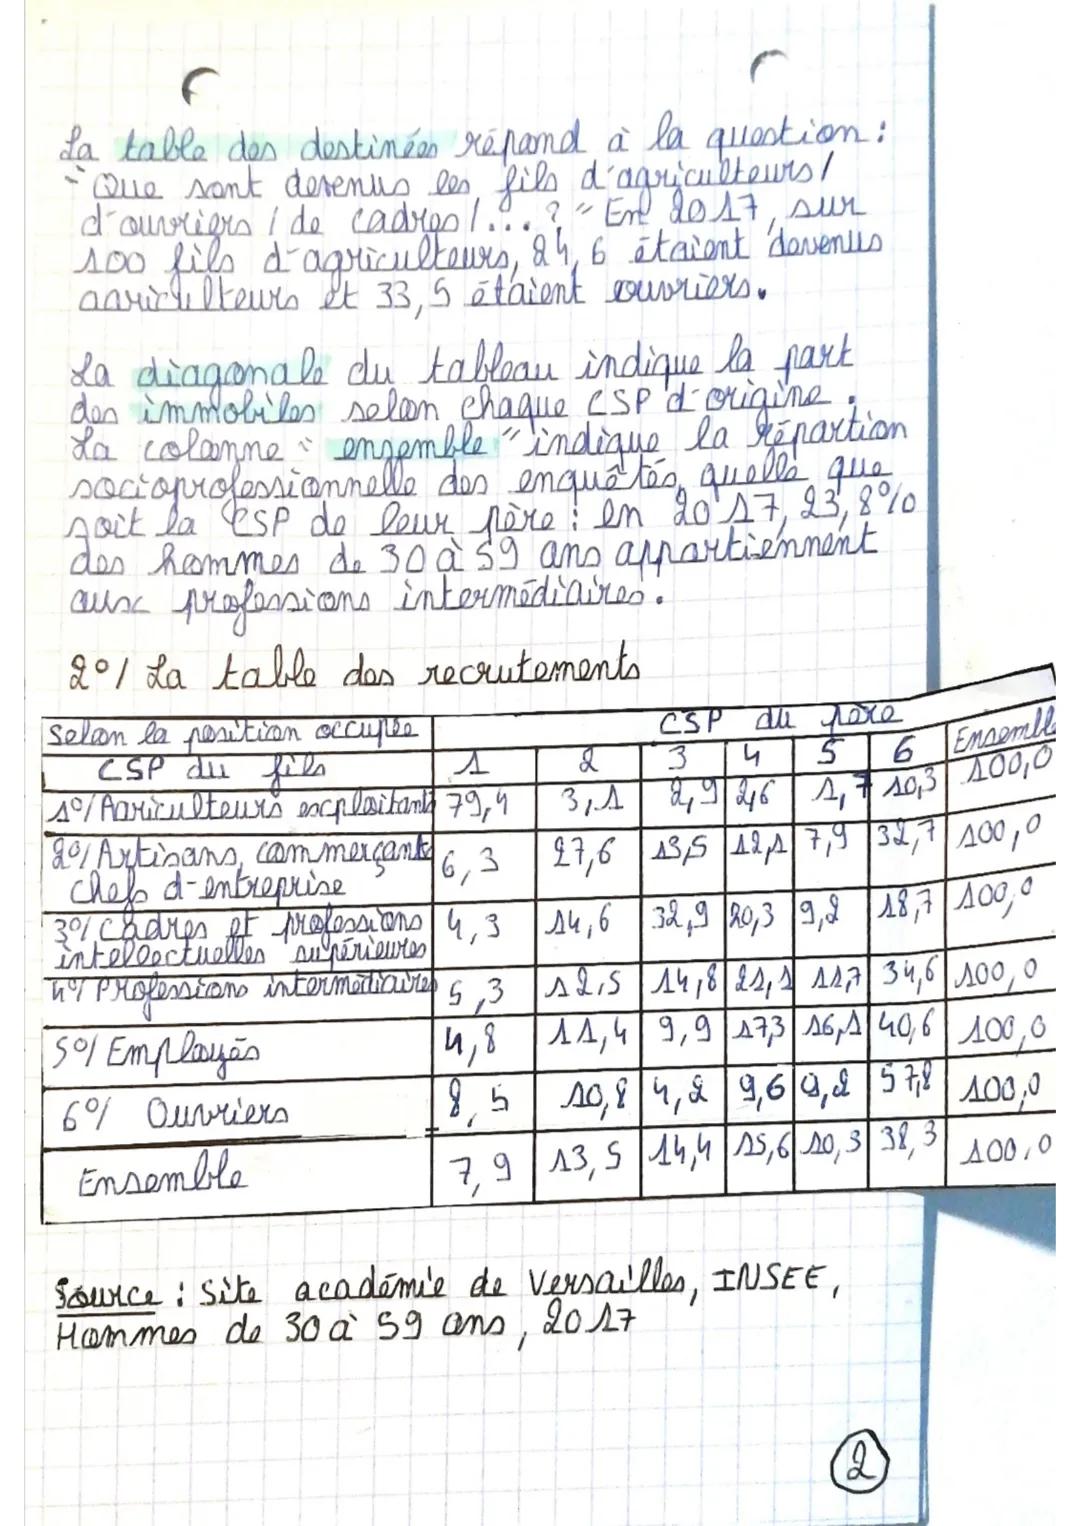 La table des destinées répond à la question :
"Que sont devenus les fils d'agriculteurs /
d'ouvriers / de cadres /... ? " En 2017, sur
100 fils d'agriculteurs, 24,6 étaient devenus
agriculteurs et 33,5 étaient ouvriers.
La diagonale du tableau indique la part
des immobiles selon chaque CSP d'origine.
La colonne "ensemble" indique la répartion
socioprofessionnelle des enquêtés, quelle que
soit la CSP de leur père : en 2017, 23,8%
des hommes de 30 à 59 ans appartiennent
aux professions intermédiaires.
2°/ La table des recrutements
Selon la position occupée CSP du père
CSP du fils 1 2 3 4 5 6 Ensemble
1°/ Agriculteurs exploitants 79,4 3,1 2,9 2,6 1,7 10,3 100,0
2°/ Artisans, commerçants 6,3 27,6 13,5 12,1 7,9 32,7 100,0
chefs d'entreprise
3°/ Cadres et professions 4,3 14,6 32,9 20,3 9,2 18,7 100,0
intellectuelles supérieures
4°/ Professions intermédiaires 5,3 12,5 14,8 21,1 11,7 34,6 100,0
5°/ Employés 4,8 11,4 9,9 17,3 16,1 40,6 100,0
6°/ Ouvriers 8,5 10,8 4,2 9,6 9,2 57,8 100,0
Ensemble 7,9 13,5 14,4 15,6 10,3 38,3 100,0
Source : Site académie de Versailles, INSEE,
Hommes de 30 à 59 ans, 2017
2